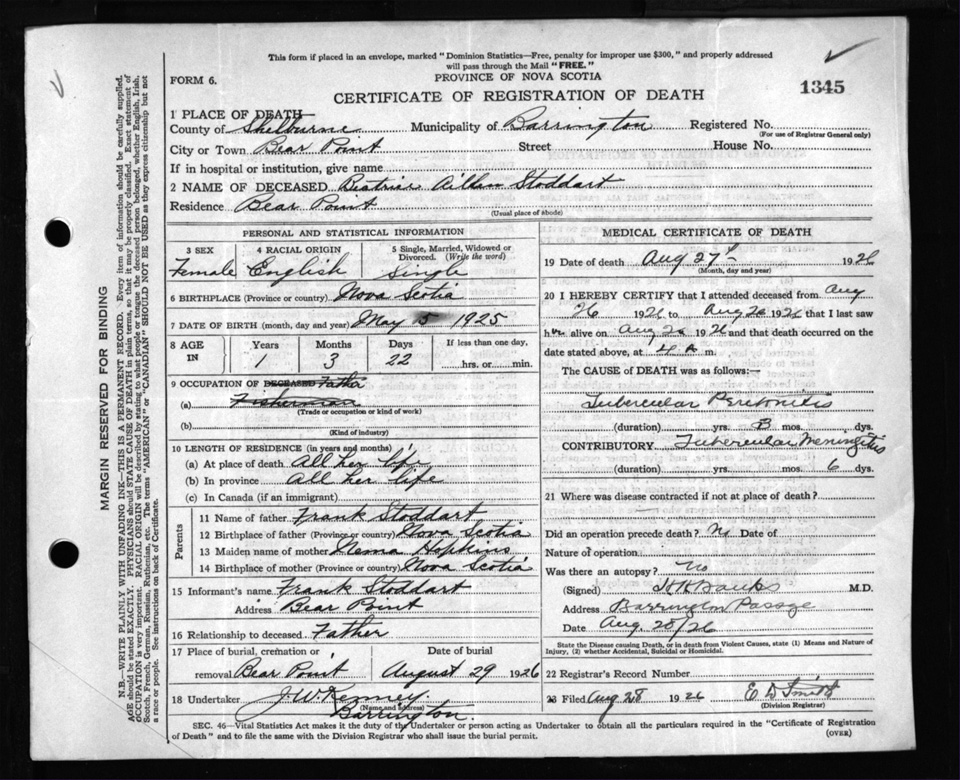 This form if placed in an envelope, marked "Dominion Statistics—Free, penalty for improper use $300," and properly addressed
will pass through the Mail "FREE."
FORM 6.
PROVINCE OF NOVA SCOTIA
1345
CERTIFICATE OF REGISTRATION OF DEATH
1 PLACE OF DEATH
County of Shelburne Municipality of Barrington Registered No.
(For use of Registrar General only)
City or Town Bear Point Street House No.
If in hospital or institution, give name
2 NAME OF DECEASED Beatrice Aillen Stoddart
Residence Bear Point
(Usual place of abode)
PERSONAL AND STATISTICAL INFORMATION
3 SEX 4 RACIAL ORIGIN 5 Single, Married, Widowed or
Divorced. (Write the word)
Female English Single
6 BIRTHPLACE (Province or country) Nova Scotia
7 DATE OF BIRTH (month, day and year) May 5 1925
8 AGE Years Months Days If less than one day,
IN 1 3 22 hrs. or min.
9 OCCUPATION OF DECEASED Father
(a) Fisherman
(Trade or occupation or kind of work)
(b)
(Kind of industry)
10 LENGTH OF RESIDENCE (in years and months)
(a) At place of death All her life
(b) In province All her life
(c) In Canada (if an immigrant)
Parents
11 Name of father Frank Stoddart
12 Birthplace of father (Province or country) Nova Scotia
13 Maiden name of mother Nema Hopkins
14 Birthplace of mother (Province or country) Nova Scotia
15 Informant's name Frank Stoddart
Address Bear Point
16 Relationship to deceased Father
17 Place of burial, cremation or Date of burial
removal Bear Point August 29 1926
18 Undertaker J. W. Kenney.
(Name and address)
Barrington.
MEDICAL CERTIFICATE OF DEATH
19 Date of death Aug 27th 1926
(Month, day and year)
20 I HEREBY CERTIFY that I attended deceased from Aug
26 1926 to Aug 26 1926 that I last saw
her alive on Aug 26 1926 and that death occurred on the
date stated above, at 4 A m.
The CAUSE of DEATH was as follows:—
Tubercular Peritonitis
(duration) yrs. mos. dys.
CONTRIBUTORY Tubercular Meningitus
(duration) yrs. mos. 6 dys.
21 Where was disease contracted if not at place of death?
Did an operation precede death? No Date of
Nature of operation
Was there an autopsy? No
(Signed) H K Banks M.D.
Address Barrington Passge
Date Aug. 28/26
State the Disease causing Death, or in death from Violent Causes, state (1) Means and Nature of
Injury, (2) whether Accidental, Suicidal or Homicidal.
22 Registrar's Record Number
23 Filed Aug 28 1926 E D Smith
(Division Registrar)
SEC. 46—Vital Statistics Act makes it the duty of the Undertaker or person acting as Undertaker to obtain all the particulars required in the "Certificate of Registration
of Death" and to file the same with the Division Registrar who shall issue the burial permit.
(OVER)
MARGIN RESERVED FOR BINDING
N.B.—WRITE PLAINLY WITH UNFADING INK—THIS IS A PERMANENT RECORD. Every item of information should be carefully supplied.
AGE should be stated EXACTLY. PHYSICIANS should STATE CAUSE OF DEATH in plain terms, so that it may be properly classified. Exact statement of
OCCUPATION is very important. RACIAL ORIGIN will be described by stating to what people or tongue the deceased person belonged, whether English, Irish,
Scotch, French, German, Russian, Ruthenian, etc. The terms "AMERICAN" or "CANADIAN" SHOULD NOT BE USED as they express citizenship but not
a race or people. See instructions on back of Certificate.